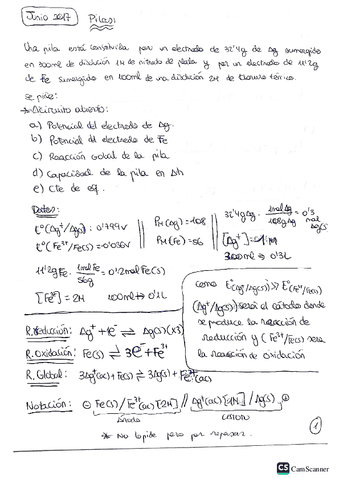 Junio 2017 Pilas
Una pila está constituida por un electrodo de 32'4g de Ag sumergido
en 300ml de disolución 1M de nitrato de plata y por un electrodo de 11'2g
de Fe sumergido en 100ml de una disolución 2M de cloruro férrico.
Se pide:
A circuito abierto:
a) Potencial del electrodo de Ag.
b) Potencial del electrodo de Fe
c) Reacción global de la pila
d) Capacidad de la pila en Ah
e) Cte de eq.
Datos:
E°(Ag⁺/Ag) : 0'799V
E°(Fe³⁺/Fe(s)) = -0'036V
PM(Ag) = 108
PM(Fe) = 56
32'4g Ag · 1mol Ag / 108g Ag = 0'3 mol Ag(s)
[Ag⁺] = 1M
300ml → 0'3L
11'2g Fe · 1mol Fe / 56g = 0'2mol Fe(s)
[Fe³⁺] = 2M 100ml → 0'1L
como E°(Ag⁺/Ag(s)) > E°(Fe³⁺/Fe(s))
(Ag⁺/Ag(s)) será el cátodo donde
se produce la reacción de
reducción y (Fe³⁺/Fe(s)) será
la reacción de oxidación
R. Reducción: Ag⁺ + 1e⁻ ⇌ Ag(s) (x3)
R. Oxidación: Fe(s) ⇌ 3e⁻ + Fe³⁺
R. Global: 3Ag⁺(ac) + Fe(s) ⇌ 3Ag(s) + Fe³⁺(ac)
Notación: ⊖ Fe(s) / Fe³⁺(ac) [2M] // Ag⁺(ac) [1M] / Ag(s) ⊕
ánodo cátodo
* No lo pide pero por repasar.
1
CS CamScanner